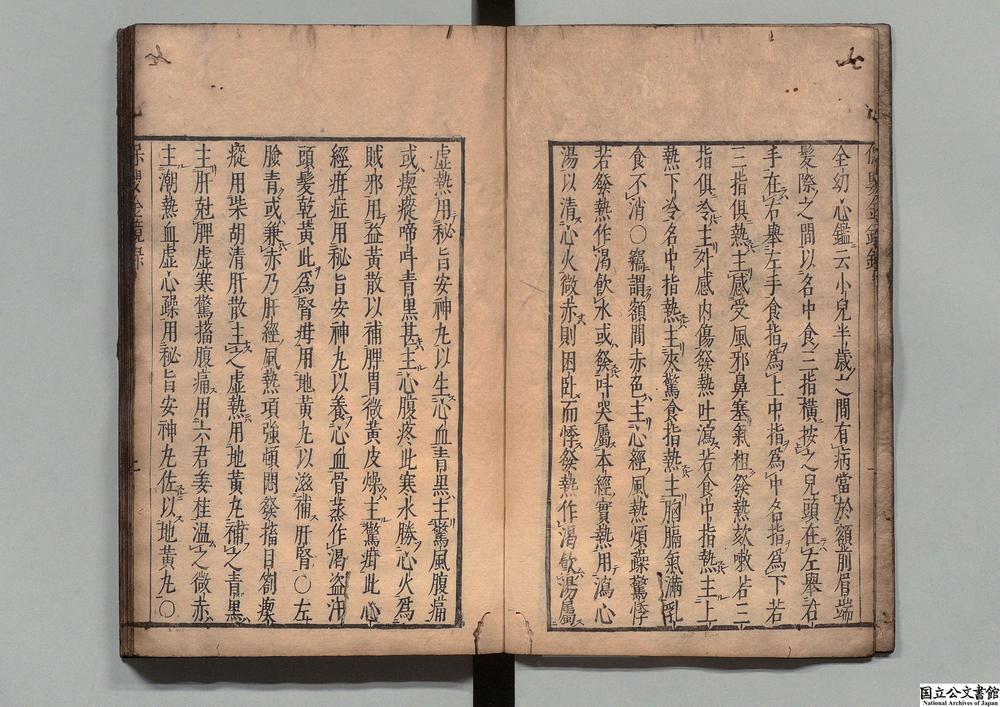 全幼心鑑云小兒半歳之間有病當於額前眉端
髪際之間以名中食三指橫按之兒頭在左舉右
手在右舉左手食指爲上中指爲中名指爲下若
三指俱熱主感受風邪鼻塞氣粗發熱欬嗽若三
指俱冷主外感内傷發熱吐瀉若食中指熱主上
熱下冷名中指熱主夾驚食指熱主胸膈氣滿乳
食不消○額間赤色主心經風熱煩躁驚悸
若發熱作渴飲水或發叫哭屬本經實熱用瀉心
湯以清心火微赤則困臥而悸發熱作渴飲湯屬
虛熱用秘旨安神丸以生心血青黑主驚風腹痛
或瘈瘲啼叫青黑甚主心腹疼此寒水勝心火爲
賊邪用益黃散以補脾胃微黃皮燥主驚疳此心
經疳症用秘旨安神丸以養心血骨蒸作渴盗汗
頭髮乾黃此爲腎疳用地黃丸以滋補肝腎○左
臉青或兼赤乃肝經風熱項強頓悶發搐目劄瘈
瘲用柴胡清肝散主之虛熱用地黃丸補之青黑
主肝尅脾虛寒驚搐腹痛用六君姜桂溫之微赤
主潮熱血虛心躁用秘旨安神丸佐以地黃丸○
七
七
国立公文書館
National Archives of Japan